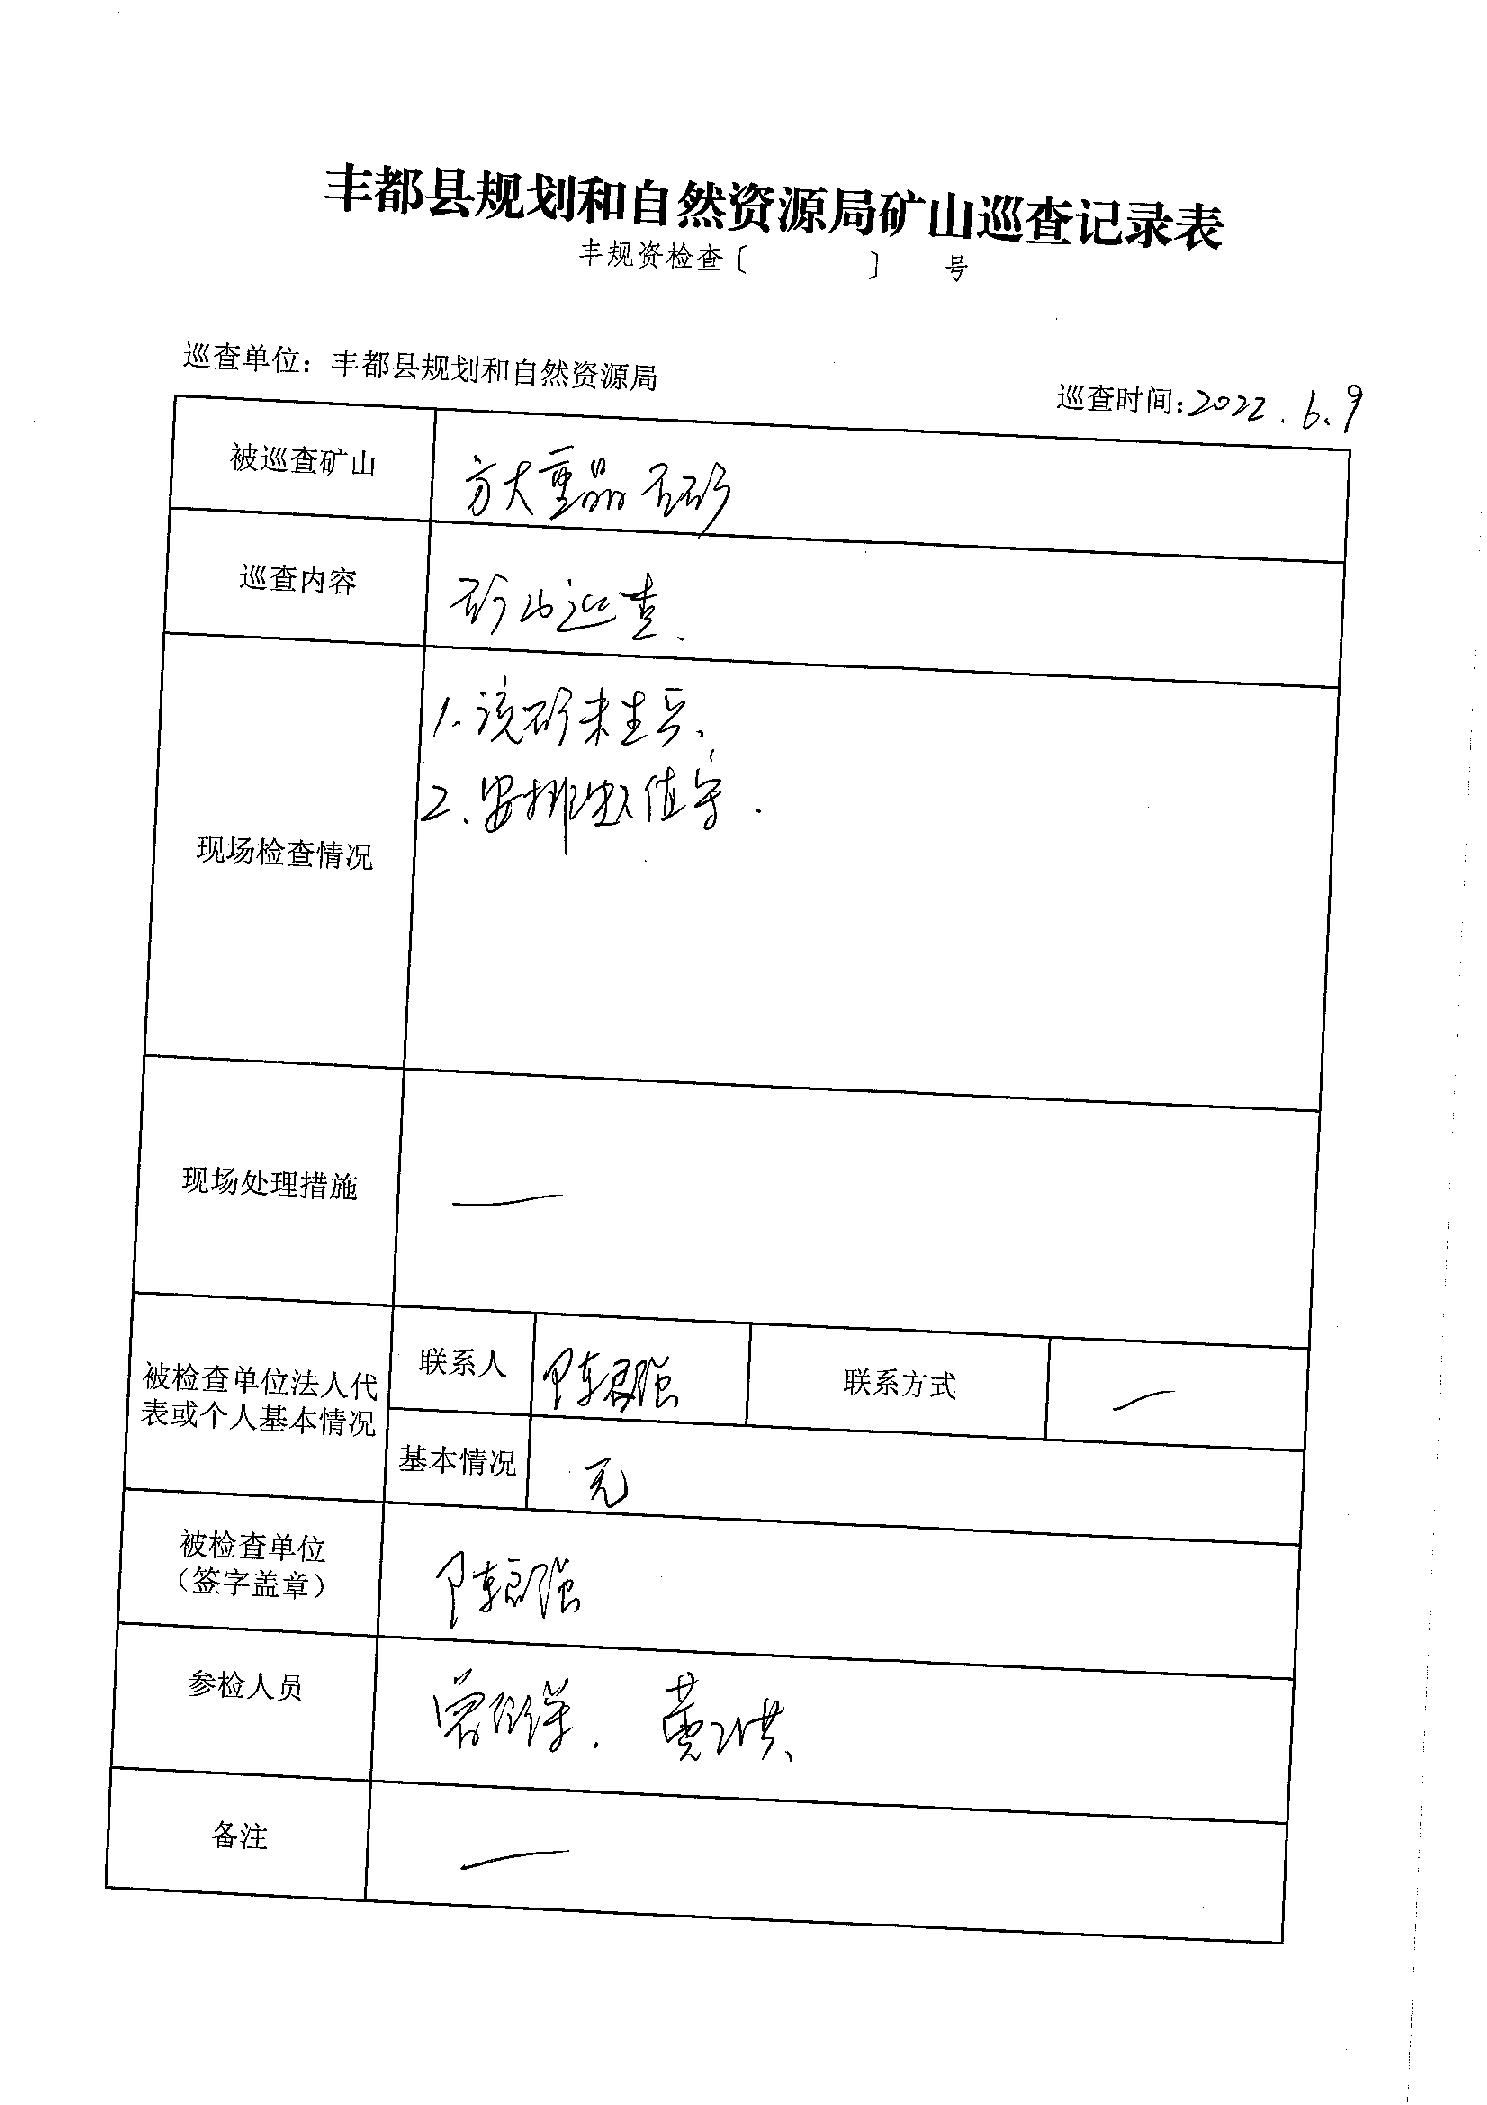 丰都县规划和自然资源局矿山巡查记录表
丰规资检查〔 〕 号
巡查单位：丰都县规划和自然资源局
巡查时间：2022.6.9
被巡查矿山
方大重晶石矿
巡查内容
矿山巡查.
现场检查情况
1.该矿未生产、
2.安排专人值守.
现场处理措施
—
被检查单位法人代
表或个人基本情况
联系人
联系方式
—
基本情况
无
被检查单位
（签字盖章）
参检人员
黄洪、
备注
—